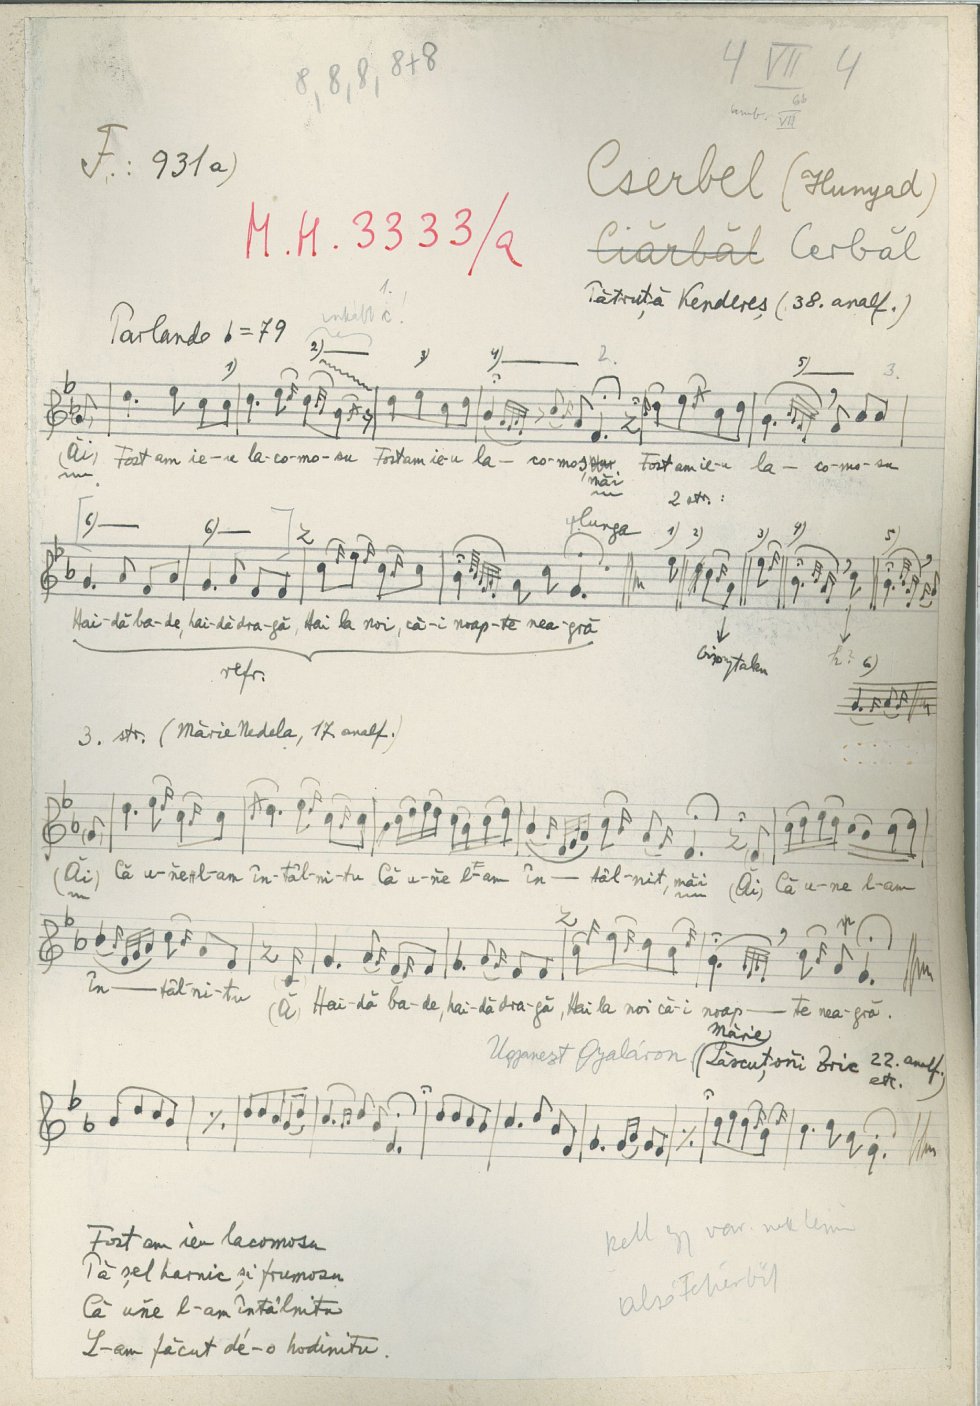 8, 8, 8, 8+8
4 VII 4
amb. VII 6b
F.: 931a)
Cserbel (Hunyad)
M.H. 3333/a
Ciărbăl Cerbăl
Pătruță Kenderes (38. analf.)
1.
inkább c!
Parlando = 79
1) 2) 3) 4) 2. 5) 3.
(Ăi) Fost am ie-u la-co-mo-su Fost am ie-u la- co-mos, măi Fost am ie-u la- co-mo-su
2 str.:
6) 6) lunga 1) 2) 3) 4) 5)
Hai-dă ba-de, hai-dă dra-gă, Hai la noi, că-i noap-te nea-gră
refr.
h? 6)
3. str. (Mărie Nedela, 17 analf.)
(Ăi) Că u-ñe l-am în-tâl-ni-tu Că u-ñe l-am în- tâl-nit, măi (Ăi) Că u-ne l-am
în- tâl-ni-tu (Ă) Hai-dă ba-de, hai-dă dra-gă, Hai la noi că-i noap- te nea-gră.
Ugyanezt Gyaláron (Mărie Lăscuțoñi Zric 22. analf. etc.)
Fost am ieu lacomosu
Pă șel harnic și frumosu
Că uñe l-am întâlnitu
L-am făcut dé-o hodinitu.
kell egy var. nek lenni
alsó Fehérből